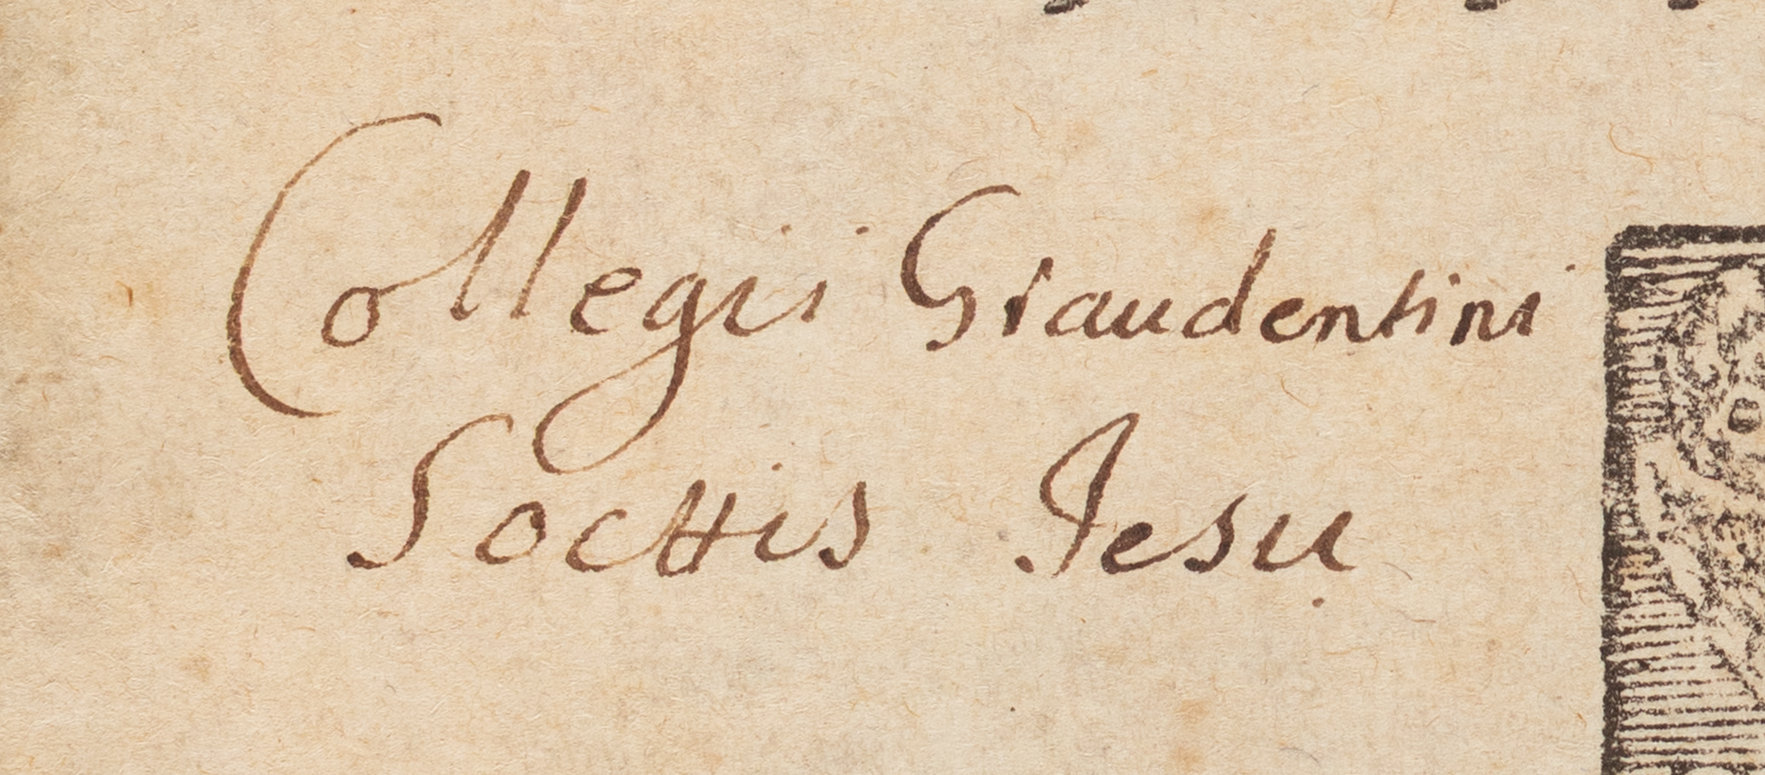 Collegii Graudentini
Socttis Jesu